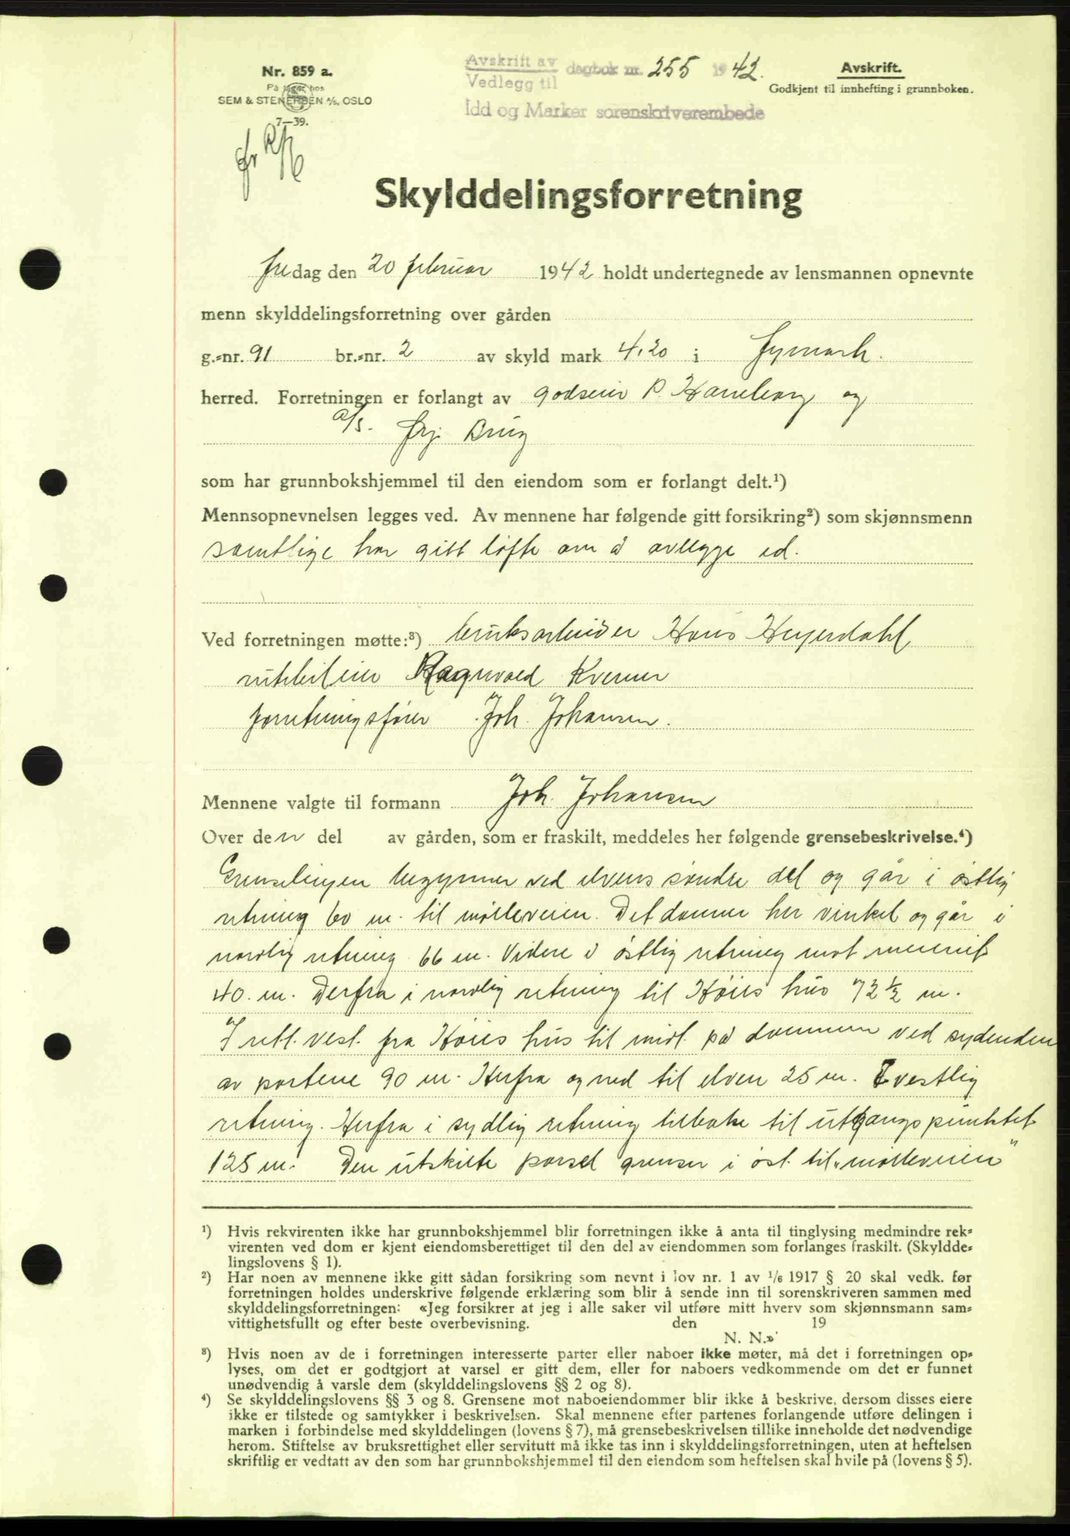 Nr. 859 a.
På lager hos
SEM & STENERSEN A/S, OSLO
7—39.
Avskrift av
Vedlegg til
dagbok nr. 255 1942.
Idd og Marker sorenskriverembede
Avskrift.
Godkjent til innhefting i grunnboken.
Skylddelingsforretning
fredag den 20 februar 1942 holdt undertegnede av lensmannen opnevnte
menn skylddelingsforretning over gården
g.-nr. 91 br.-nr. 2 av skyld mark 4,20 i
herred. Forretningen er forlangt av godseier P Hansberg og
a/s. Brug
som har grunnbokshjemmel til den eiendom som er forlangt delt.¹)
Mennsopnevnelsen legges ved. Av mennene har følgende gitt forsikring²) som skjønnsmenn
samtlige har gitt løfte om å avlegge ed.
Ved forretningen møtte:³) bruksarbeider Hans Heyerdahl
Ragnvald Kverner
forretningsfører Joh. Johansen.
Mennene valgte til formann Joh. Johansen
Over den del av gården, som er fraskilt, meddeles her følgende grensebeskrivelse.⁴)
Grenselinjen begynner ved elvens søndre del og går i østlig
retning 60 m. til mølleveien. Det danner her vinkel og går i
nordlig retning 66 m. Videre i østlig retning mot
40. m. Derfra i nordlig retning til Høiis hus 72 ½ m.
I rett. vest. fra Høiis hus til midt på dammen ved sydenden
av portene 90 m. Herfra og ned til elven 25 m. I vestlig
retning. Herfra i sydlig retning tilbake til utgangspunktet
125 m. Den utskilte parsel grenser i øst. til "mølleveien"
¹) Hvis rekvirenten ikke har grunnbokshjemmel blir forretningen ikke å anta til tinglysing medmindre rek-
virenten ved dom er kjent eiendomsberettiget til den del av eiendommen som forlanges fraskilt. (Skyldde-
lingslovens § 1).
²) Har noen av mennene ikke gitt sådan forsikring som nevnt i lov nr. 1 av 1/6 1917 § 20 skal vedk. før
forretningen holdes underskrive følgende erklæring som blir å sende inn til sorenskriveren sammen med
skylddelingsforretningen: «Jeg forsikrer at jeg i alle saker vil utføre mitt hverv som skjønnsmann sam-
vittighetsfullt og efter beste overbevisning. den 19
N. N.»
³) Hvis noen av de i forretningen interesserte parter eller naboer ikke møter, må det i forretningen op-
lyses, om det er godtgjort at varsel er gitt dem, eller for naboers vedkommende om det er funnet
unødvendig å varsle dem (skylddelingslovens §§ 2 og 8).
⁴) Se skylddelingslovens §§ 3 og 8. Grensene mot naboeiendommer blir ikke å beskrive, dersom disses eiere
ikke er tilstede og samtykker i beskrivelsen. Skal mennene efter partenes forlangende utføre delingen i
marken i forbindelse med skylddelingen (lovens § 7), må grensebeskrivelsen tillike inneholde det nødvendige
herom. Stiftelse av bruksrettighet eller servitutt må ikke tas inn i skylddelingsforretningen, uten at heftelsen
skriftlig er vedtatt av den som har grunnbokshjemmel til den eiendom som heftelsen skal hvile på (lovens § 5).